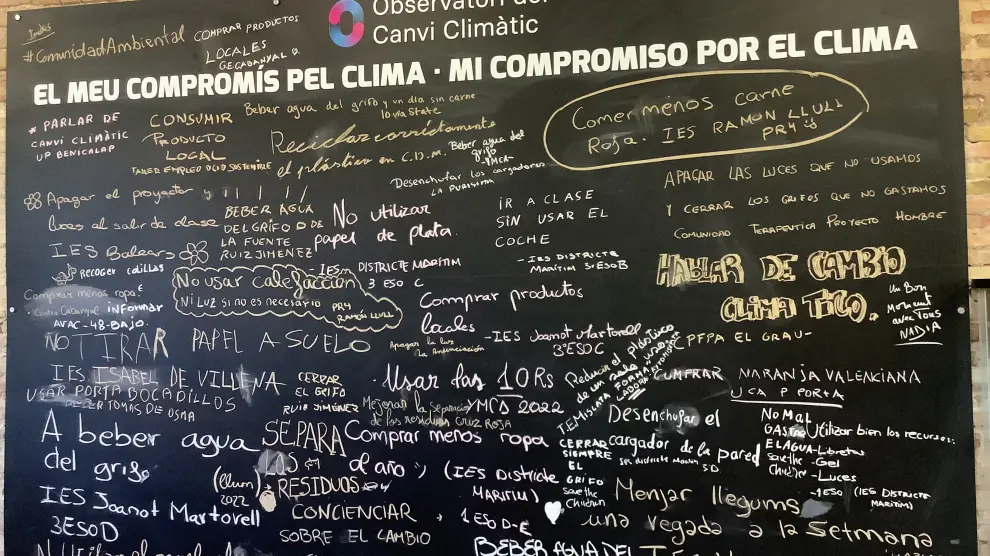 Observatori del
Canvi Climàtic
#ComunidadAmbiental
COMPRAR PRODUCTOS
LOCALES
EL MEU COMPROMÍS PEL CLIMA · MI COMPROMISO POR EL CLIMA
* PARLAR DE
CANVI CLIMÀTIC
UP BENICALAP
CONSUMIR
PRODUCTO
LOCAL
TALLER EMPLEO OCIO SOSTENIBLE
Beber agua del grifo y un día sin carne
Reciclar correctamente
el plástico en C.D.M.
Beber agua del
grifo
-YMCA-
Desenchufar los cargadores
LA PURISIMA
Comer menos carne
Rosa. IES RAMON LLULL
PR4
Apagar el proyector y
luces al salir de clase
IES Balears
BEBER AGUA
DEL GRIFO O DE
LA FUENTE
RUIZ JIMENEZ
No utilizar
papel de plata.
IES DISTRICTE MARÍTIM
3 ESO C
IR A CLASE
SIN USAR EL
COCHE
- IES DISTRICTE
MARÍTIM 3ºESO B
APAGAR LAS LUCES QUE NO USAMOS
Y CERRAR LOS GRIFOS QUE NO GASTAMOS
COMUNIDAD TERAPEUTICA PROYECTO HOMBRE
RECOGER COLILLAS
Comprar menos ropa!
INFORMAR
AVAC-48-BAJO.
No usar calefacción
NI LUZ SI NO ES NECESARIO
PR4
RAMÓN LLULL
Comprar productos
locales
- IES Joanot Martorell
3ºESO C
HABLAR DE CAMBIO
CLIMATICO.
PFPA EL GRAU-
Un Bon
Moment
avec Vous
NADIA
NO TIRAR PAPEL A SUELO
Apagar la luz
IES ISABEL DE VILLENA
USAR PORTA BOCADILLOS
TOMAS DE OSMA
CERRAR
EL GRIFO
RUIZ JIMÉNEZ
· Usar las 10Rs
YMCA 2022
Mejorar la separación
de los residuos CRUZ ROJA
Reducir el plástico
de un solo uso
CUMPRAR NARANJA VALENCIANA
UCA P PORTA
A beber agua
del grifo
IES Joanot Martorell
3ESO D
SEPARA
LOS
RESIDUOS
(llum)
2022
Comprar menos ropa
al año
(IES Districte
MARÍTIM)
1 ESO D-E
CERRAR
SIEMPRE
EL
GRIFO
Save the
Children
Desenchufar el
cargador de la pared
NO MAL
GASTAR
EL AGUA
Save the
Children
Utilizar bien los recursos:
-Libretas
-Gel
-Luces
-1ESO (IES DISTRICTE
MARÍTIM)
CONCIENCIAR
SOBRE EL CAMBIO
Menjar llegums
una vegada a la Setmana
BEBER AGUA DEL